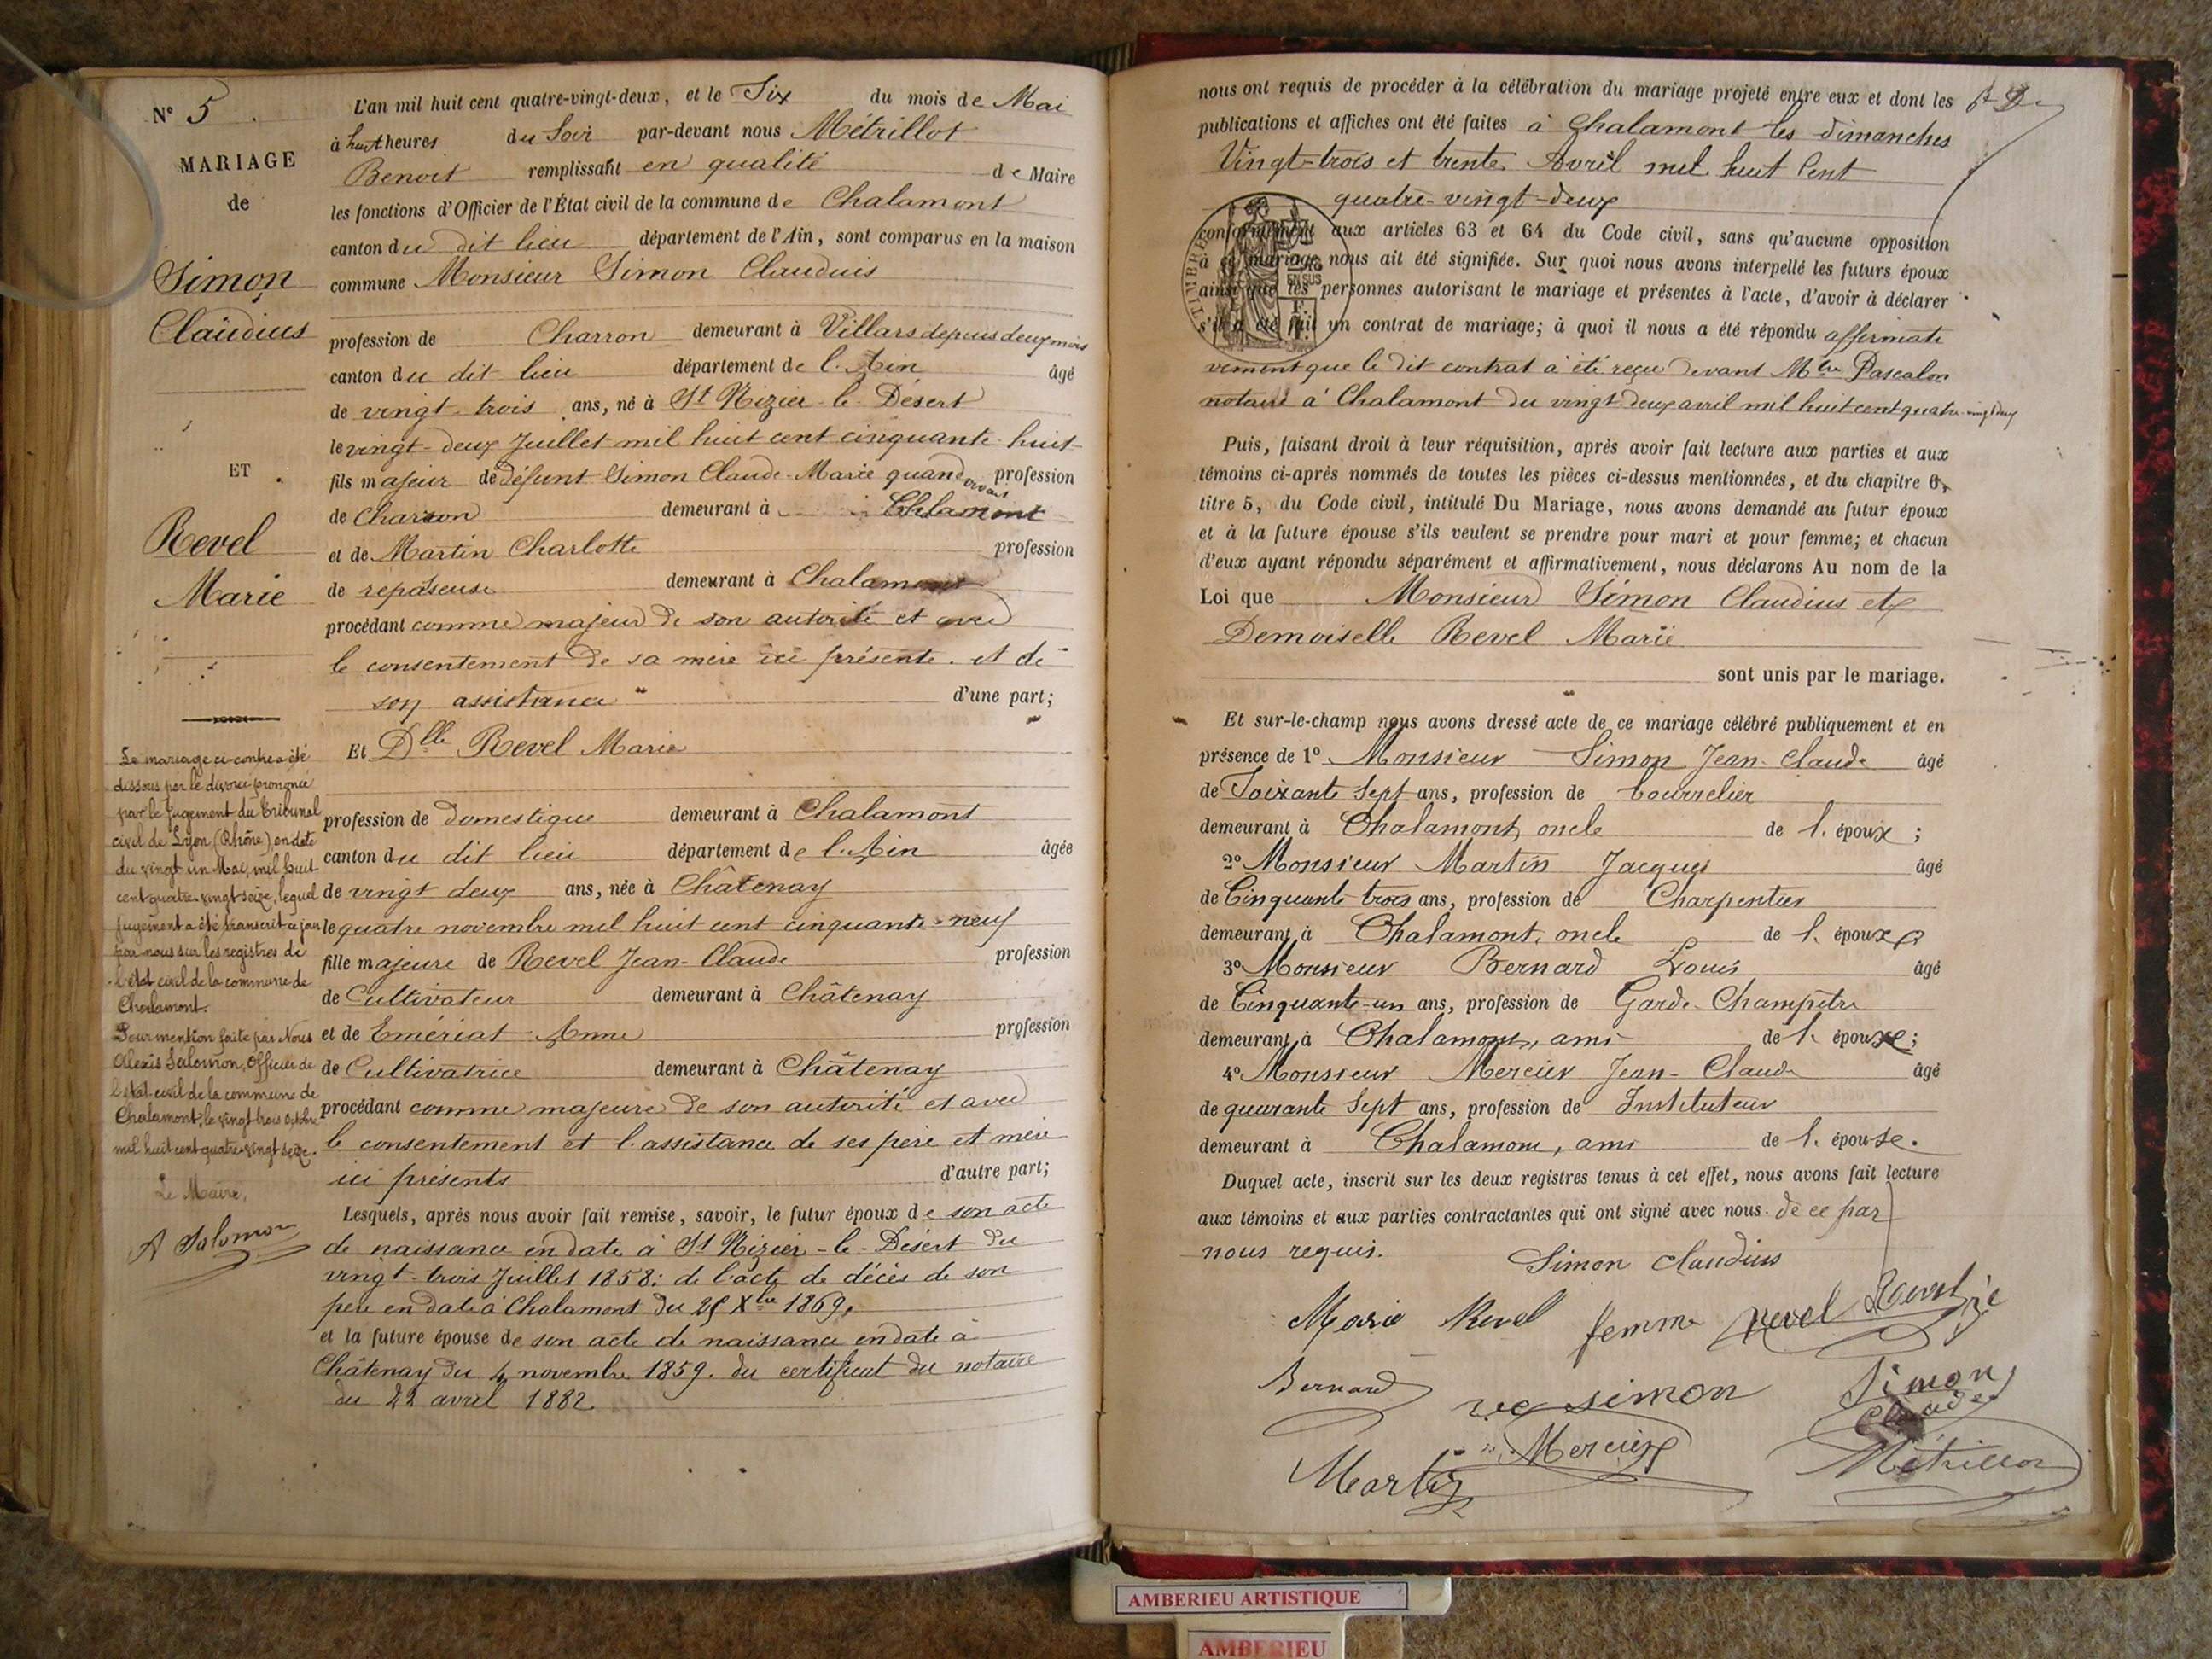 N° 5
MARIAGE
de
Simon
Claudius
ET
Revel
Marie
Le mariage ci-contre a été
dissous par le divorce prononcé
par le jugement du Tribunal
civil de Lyon (Rhône) en date
du vingt un Mai, mil huit
cent quatre vingt seize, lequel
jugement a été transcrit ce jour
par nous sur les registres de
l'état civil de la commune de
Chalamont.
Pour mention faite par Nous
Alexis Salomon, Officier de
l'état civil de la commune de
Chalamont, le vingt trois octobre
mil huit cent quatre vingt seize.
Le Maire,
A Salomon
L'an mil huit cent quatre-vingt-deux, et le Six du mois de Mai
à huit heures du Soir par-devant nous Métrillot
Benoit remplissant en qualité de Maire
les fonctions d'Officier de l'État civil de la commune de Chalamont
canton du dit lieu département de l'Ain, sont comparus en la maison
commune Monsieur Simon Claudius
profession de Charron demeurant à Villars depuis deux mois
canton du dit lieu département de l'Ain âgé
de vingt trois ans, né à St Nizier-le-Désert
le vingt-deux Juillet mil huit cent cinquante-huit
fils majeur de défunt Simon Claude-Marie quand vivait profession
de Charron demeurant à Chlamont
et de Martin Charlotte profession
de repasseuse demeurant à Chalamont
procédant comme majeur de son autorité et avec
le consentement de sa mère ici présente et de
son assistance d'une part;
Et Dlle Revel Marie
profession de domestique demeurant à Chalamont
canton du dit lieu département de l'Ain âgée
de vingt deux ans, née à Châtenay
le quatre novembre mil huit cent cinquante-neuf
fille majeure de Revel Jean-Claude profession
de Cultivateur demeurant à Châtenay
et de Emériat Anne profession
de Cultivatrice demeurant à Châtenay
procédant comme majeure de son autorité et avec
le consentement et l'assistance de ses père et mère
ici présents d'autre part;
Lesquels, après nous avoir fait remise, savoir, le futur époux de son acte
de naissance en date à St Nizier-le-Désert du
vingt-trois Juillet 1858: de l'acte de décès de son
père en date à Chalamont du Xbre 1869.
et la future épouse de son acte de naissance en date à
Châtenay du 4 novembre 1859. du certificat du notaire
du 22 avril 1882.
nous ont requis de procéder à la célébration du mariage projeté entre eux et dont les
publications et affiches ont été faites à Chalamont les dimanches
Vingt-trois et trente Avril mil huit Cent
quatre-vingt-deux
conformément aux articles 63 et 64 du Code civil, sans qu'aucune opposition
à ce mariage nous ait été signifiée. Sur quoi nous avons interpellé les futurs époux
ainsi que les personnes autorisant le mariage et présentes à l'acte, d'avoir à déclarer
s'il a été fait un contrat de mariage; à quoi il nous a été répondu affirmati
vement que le dit contrat à été reçu devant Mtre Pascalon
notaire à Chalamont du vingt deux avril mil huit cent quatre-vingt deux
Puis, faisant droit à leur réquisition, après avoir fait lecture aux parties et aux
témoins ci-après nommés de toutes les pièces ci-dessus mentionnées, et du chapitre 6,
titre 5, du Code civil, intitulé Du Mariage, nous avons demandé au futur époux
et à la future épouse s'ils veulent se prendre pour mari et pour femme; et chacun
d'eux ayant répondu séparément et affirmativement, nous déclarons Au nom de la
Loi que Monsieur Simon Claudius et
Demoiselle Revel Marie
sont unis par le mariage.
Et sur-le-champ nous avons dressé acte de ce mariage célébré publiquement et en
présence de 1° Monsieur Simon Jean-Claude âgé
de Soixante Sept ans, profession de bourrelier
demeurant à Chalamont, oncle de l. époux ;
2° Monsieur Martin Jacques âgé
de Cinquante trois ans, profession de Charpentier
demeurant à Chalamont, oncle de l. époux
3° Monsieur Bernard Louis âgé
de Cinquante-un ans, profession de Garde-Champêtre
demeurant à Chalamont, ami de l. épouse;
4° Monsieur Mercier Jean-Claude âgé
de quarante Sept ans, profession de Instituteur
demeurant à Chalamont, ami de l. épouse.
Duquel acte, inscrit sur les deux registres tenus à cet effet, nous avons fait lecture
aux témoins et aux parties contractantes qui ont signé avec nous. de ce par
nous requis.
Simon Claudius
Marie Revel femme Revel Revel
Bernard simon Simon
Claude
Martin Mercier Métrillot
TIMBRE
EN SUS
AMBERIEU ARTISTIQUE
AMBERIEU